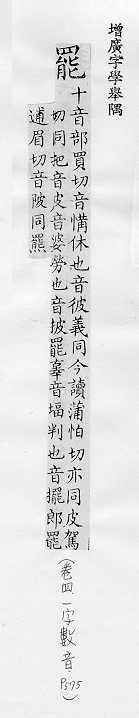 增廣字學舉隅
罷 十音部買切音㸽休也音彼義同今讀蒲怕切亦同皮駕
切同把音皮音婆勞也音披罷辜音堛判也音擺郎罷
逋眉切音陂同羆
(卷四.一字數音.P595)